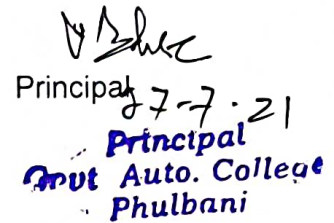 Principal
27-7-21
Principal
Govt Auto. College
Phulbani